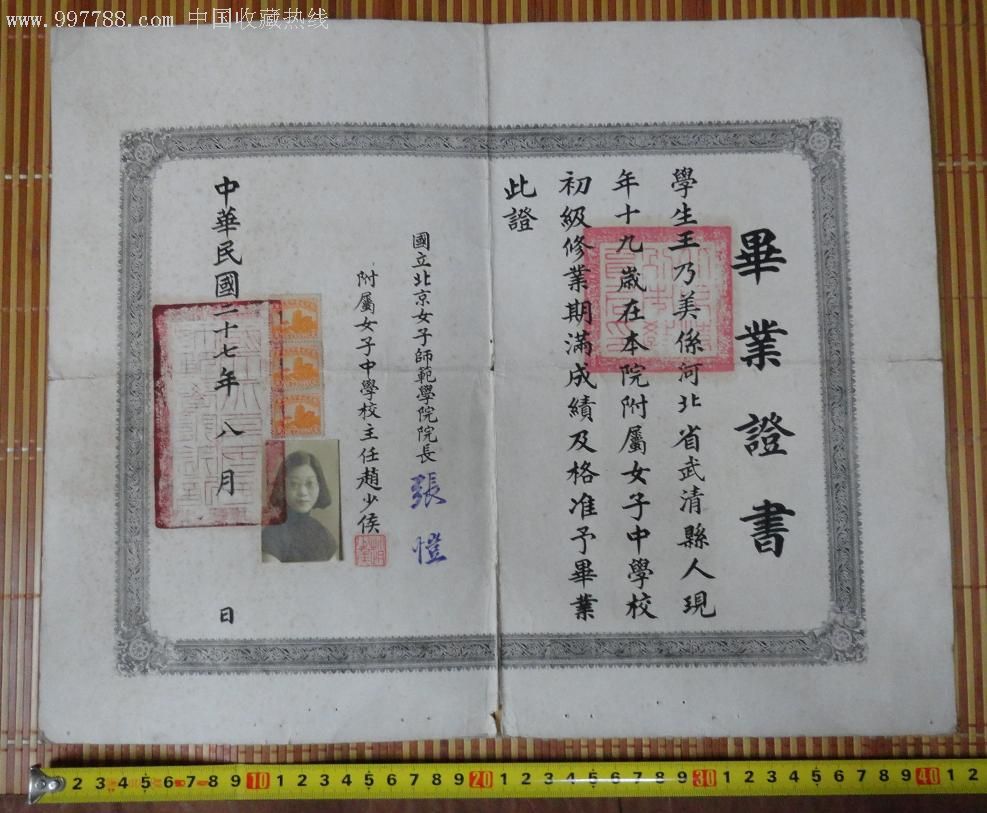 www.997788.com 中国收藏热线
畢業證書
學生王乃美係河北省武清縣人現
年十九歲在本院附屬女子中學校
初級修業期滿成績及格准予畢業
此證
國立北京女子師範學院院長 張愷
附屬女子中學校主任趙少侯
中華民國二十七年八月 日
2 3 4 5 6 7 8 9 10 1 2 3 4 5 6 7 8 9 20 1 2 3 4 5 6 7 8 9 30 1 2 3 4 5 6 7 8 9 40 1 2